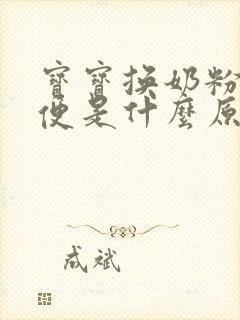 寶寶換奶粉
便是什麼原
成斌